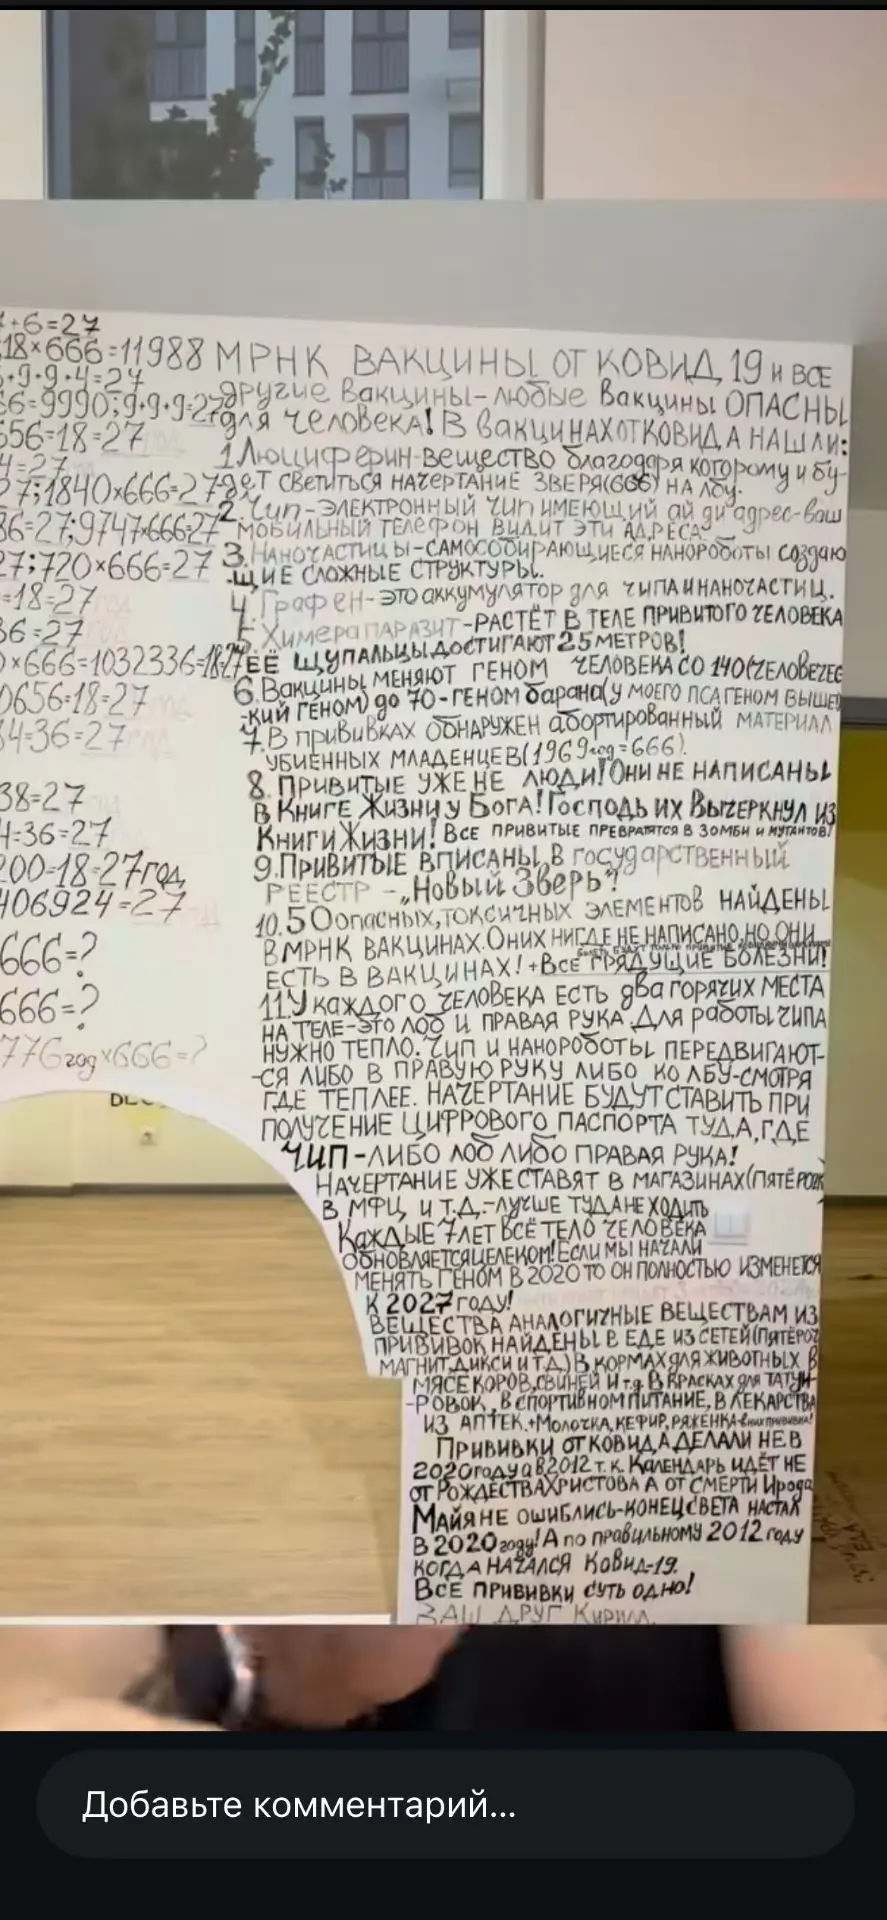 7+6=27
18×666=11988
6·9·9·4=27
66=9990;9·9·9=27
656=18=27
4=27
27;1840×666=27
86=27;9747×666=27
27;720×666=27
=18=27
36=27
0×666=1032336=18=27
0656=18=27
34=36=27
38=27
4=36=27
200=18=27год
406924=27
666=?
666=?
776год×666=?
МРНК ВАКЦИНЫ ОТ КОВИД 19 и ВСЕ
другие Вакцины-любые Вакцины ОПАСНЫ
для человека! В вакцинах от КОВИДА НАШЛИ:
1.Люциферин-вещество благодаря которому и бу-
дет светиться начертание ЗВЕРЯ(666) НА лбу.
2. Чип-электронный чип имеющий ай ди адрес-ваш
мобильный телефон видит эти адреса.
3.Наночастицы-самособирающиеся нанороботы создаю
-щие сложные структуры.
4 Графен-это аккумулятор для чипа и наночастиц.
5.Химера паразит-растёт в теле привитого человека
её щупальцы достигают 25 метров!
6.Вакцины меняют геном человека со 140(человечес
-кий геном) до 70-геном барана(у моего пса геном выше)
7.В прививках обнаружен абортированный материал
убиенных младенцев(1969год=666).
8. Привитые уже не люди! Они не написаны
в Книге Жизни у Бога! Господь их Вычеркнул из
Книги Жизни! Все привитые превратятся в зомби и мутантов!
9.Привитые вписаны в государственный
реестр - „Новый Зверь"!
10.50 опасных, токсичных элементов найдены
в МРНК вакцинах. О них нигде не написано, но они
есть в вакцинах! + Все грядущие болезни!
11.У каждого человека есть два горячих места
на теле-это лоб и правая рука. Для работы чипа
нужно тепло. Чип и нанороботы передвигают-
-ся либо в правую руку либо ко лбу-смотря
где теплее. Начертание будут ставить при
получение цифрового паспорта туда, где
чип-либо лоб либо правая рука!
Начертание уже ставят в магазинах(Пятёрочк
в МФЦ и т.д.-лучше туда не ходить
Каждые 7 лет всё тело человека
обновляется целеком! Если мы начали
менять геном в 2020 то он полностью изменется
к 2027 году!
Вещества аналогичные веществам из
прививок найдены в еде из сетей(Пятёроч
Магнит, Дикси и т.д.) в кормах для животных в
мясе коров, свиней и т.д. В красках для татуи-
-ровок, в спортивном питание, в лекарства
из аптек.+Молочка, кефир, ряженка-в них прививка!
Прививки от ковида делали не в
2020 году а в 2012 т.к. Календарь идёт не
от Рождества Христова а от смерти Ирода
Майя не ошиблись-конец света настал
в 2020 году! А по правильному 2012 году
когда начался Ковид-19.
Все прививки суть одно!
Ваш друг Кирилл.
Добавьте комментарий...